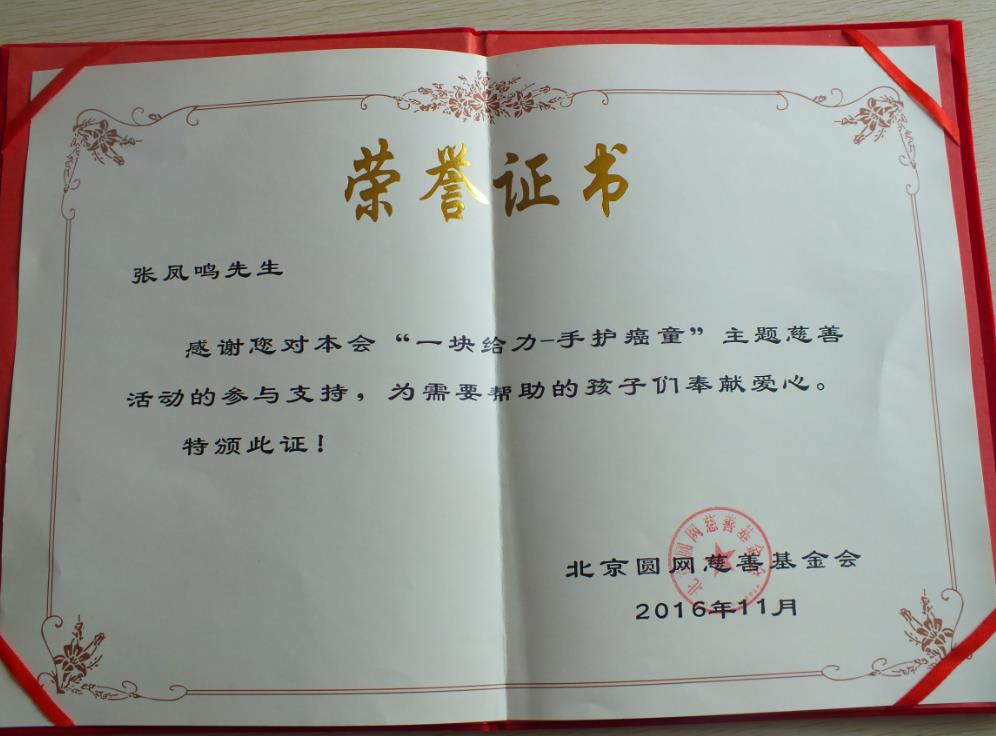 荣誉证书
张凤鸣先生
感谢您对本会“一块给力-手护癌童”主题慈善
活动的参与支持，为需要帮助的孩子们奉献爱心。
特颁此证！
北京圆网慈善基金会
北京圆网慈善基金会
2016年11月